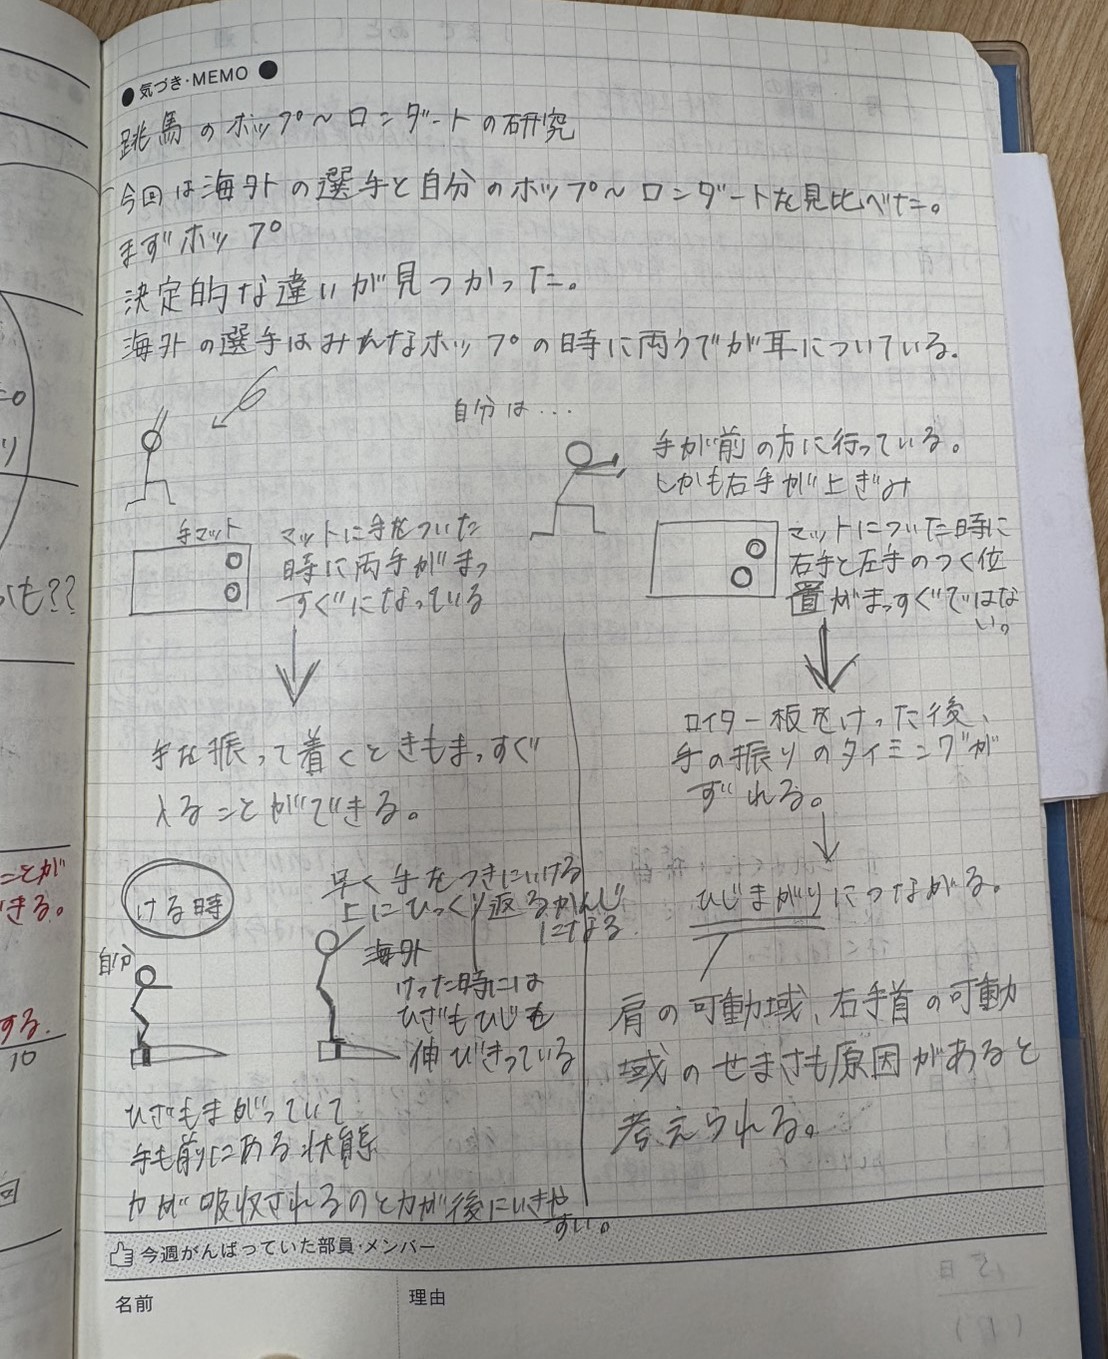 ●気づき・MEMO●
跳馬のホップ〜ロンダートの研究
今回は海外の選手と自分のホップ〜ロンダートを見比べた。
まずホップ
決定的な違いが見つかった。
海外の選手はみんなホップの時に両うでが耳についている。
自分は…
手が前の方に行っている。
しかも右手が上ぎみ
手マット
マットに手をついた
時に両手がまっ
すぐになっている
マットについた時に
右手と左手のつく位
置がまっすぐではな
い。
手を振って着くときもまっすぐ
入ることができる。
ロイター板をけった後、
手の振りのタイミングが
ずれる。
ひじまがりにつながる。
肩の可動域、右手首の可動
域のせまさも原因があると
考えられる。
ける時
早く手をつきにいける
上にひっくり返るかんじ
になる
自分
海外
けった時には
ひざもひじも
伸びきっている
ひざもまがっていて
手も前にある状態
力が吸収されるのと力が後にいきや
すい。
今週がんばっていた部員・メンバー
名前
理由
も??
ことが
きる。
する。
10
回